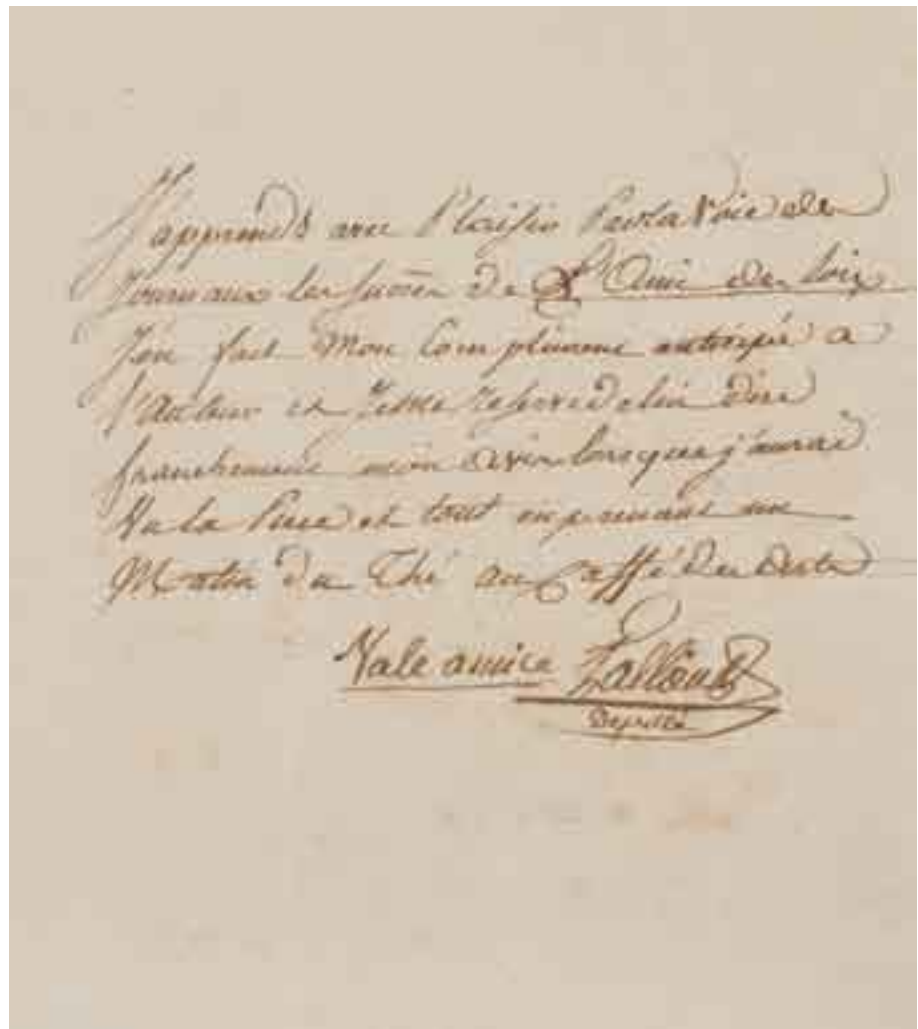 J'apprends avec Plaisir Par la Voie des
Journaux les succès de L'Ami des loix
J'en fait Mon Compliment anticipé a
l'auteur et Je me reserve de lui dire
franchement mon avis lorsque j'aurai
Vu la Piece et tout en prenant un
Matin du Thé au Caffé
Vale amice
Deputé